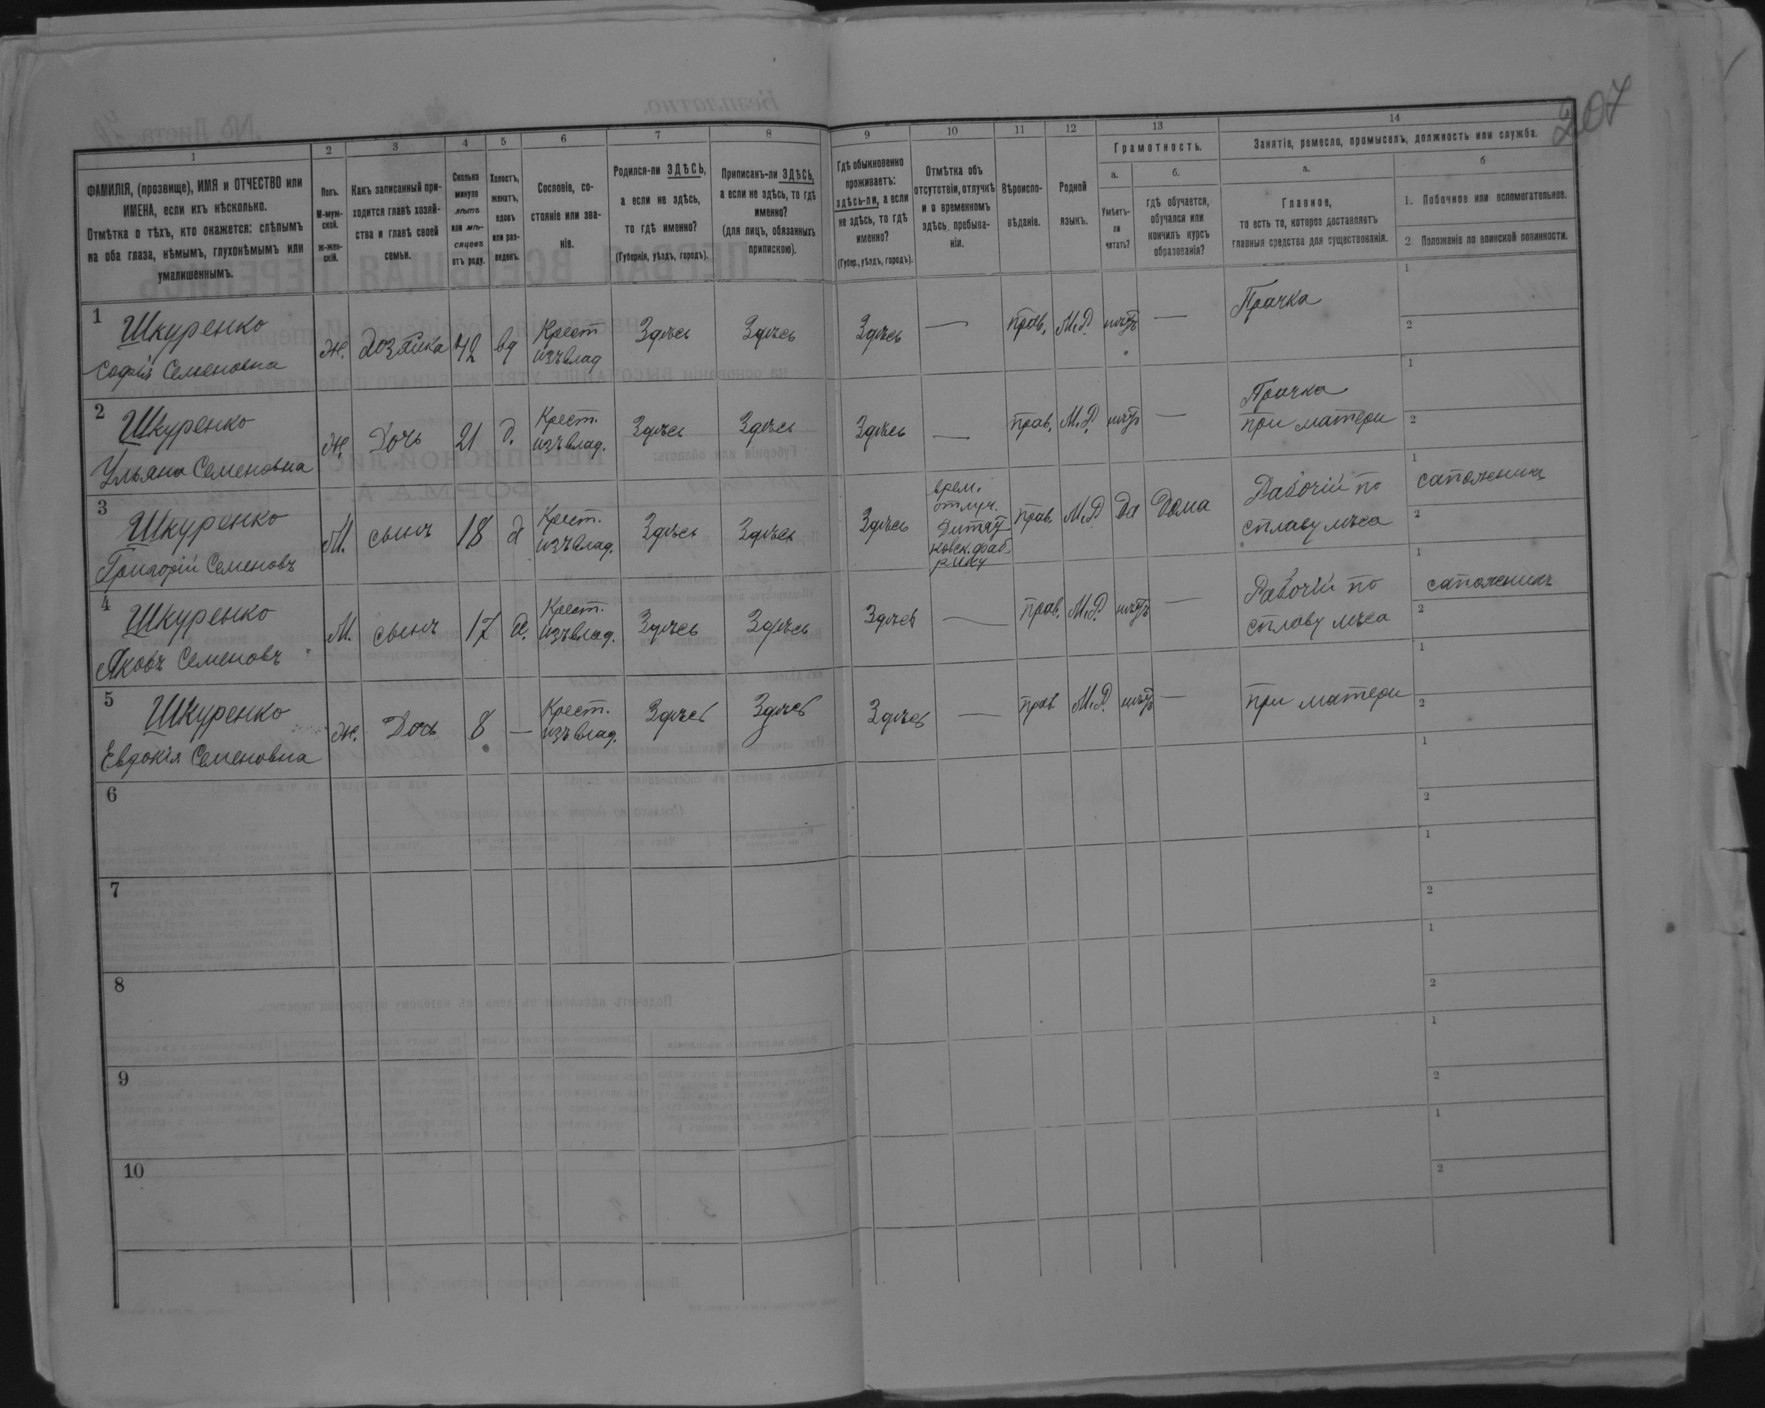 207
1
ФАМИЛІЯ, (прозвище), ИМЯ и ОТЧЕСТВО или
ИМЕНА, если ихъ нѣсколько.
Отмѣтка о тѣхъ, кто окажется: слѣпымъ
на оба глаза, нѣмымъ, глухонѣмымъ или
умалишеннымъ.
2
Полъ.
М-муж-
ской.
Ж-жен-
скій.
3
Какъ записанный при-
ходится главѣ хозяй-
ства и главѣ своей
семьи.
4
Сколько
минуло
лѣтъ
или мѣ-
сяцевъ
отъ роду.
5
Холостъ,
женатъ,
вдовъ
или раз-
веденъ.
6
Сословіе, со-
стояніе или зва-
ніе.
7
Родился-ли ЗДѢСЬ,
а если не здѣсь,
то гдѣ именно?
(Губернія, уѣздъ, городъ).
8
Приписанъ-ли ЗДѢСЬ,
а если не здѣсь, то гдѣ
именно?
(для лицъ, обязанныхъ
припискою).
9
Гдѣ обыкновенно
проживаетъ:
здѣсь-ли, а если
не здѣсь, то гдѣ
именно?
(Губер., уѣздъ, городъ).
10
Отмѣтка объ
отсутствіи, отлучкѣ
и о временномъ
здѣсь пребыва-
ніи.
11
Вѣроиспо-
вѣданіе.
12
Родной
языкъ.
13
Грамотность.
а.
Умѣетъ-
ли
читать?
б.
гдѣ обучается,
обучался или
кончилъ курсъ
образованія?
14
Занятіе, ремесло, промыселъ, должность или служба.
а.
Главное,
то есть то, которое доставляетъ
главныя средства для существованія.
б
1. Побочное или вспомогательное.
2 Положеніе по воинской повинности.
1
Шкуренко
Софія Семеновна
ж.
хозяйка
42
вд
Крест
изъ влад
Здѣсь
Здѣсь
Здѣсь
—
прав.
М.Р.
нѣтъ
—
Прачка
1
2
2
Шкуренко
Ульяна Семеновна
ж.
Дочь
21
д.
Крест.
изъ влад.
Здѣсь
Здѣсь
Здѣсь
—
прав.
М.Р.
нѣтъ
—
Прачка
при матери
1
2
3
Шкуренко
Григорій Семеновъ
М.
сынъ
18
Крест.
изъ влад.
Здѣсь
Здѣсь
Здѣсь
врем.
отлуч.
прав.
М.Р
Да
Дома
Рабочій по
сплаву лѣса
1
сапожникъ
2
4
Шкуренко
Яковъ Семеновъ
М.
сынъ
17
Крест.
изъ влад.
Здѣсь
Здѣсь
Здѣсь
—
прав.
М.Р.
нѣтъ
—
Рабочій по
сплаву лѣса
1
сапожникъ
2
5
Шкуренко
Евдокія Семеновна
ж.
Дочь
8
—
Крест.
изъ влад.
Здѣсь
Здѣсь
Здѣсь
—
прав
М.Р.
нѣтъ
—
при матери
1
2
6
1
2
7
1
2
8
1
2
9
1
2
10
1
2